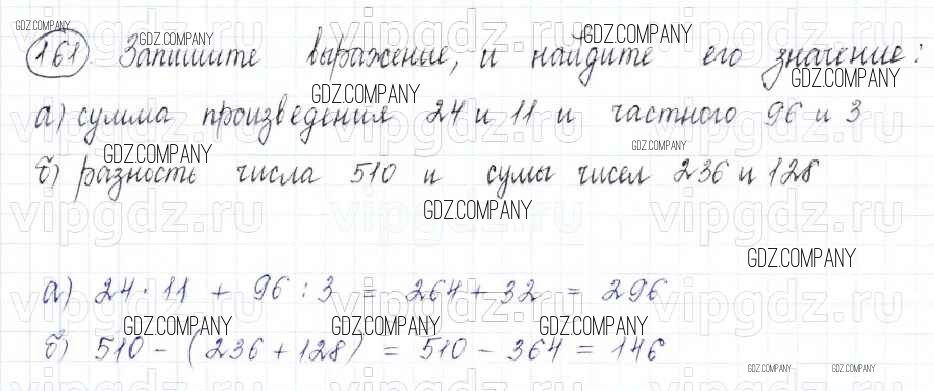 GDZ.COMPANY
161. Запишите выражение, и найдите его значение:
GDZ.COMPANY GDZ.COMPANY GDZ.COMPANY
GDZ.COMPANY
а) сумма произведения 24 и 11 и частного 96 и 3
GDZ.COMPANY GDZ.COMPANY
б) разность числа 510 и сумы чисел 236 и 128
GDZ.COMPANY
vipgdz.ru vipgdz.ru vipgdz.ru
GDZ.COMPANY
а) 24 · 11 + 96 : 3 = 264 + 32 = 296
GDZ.COMPANY GDZ.COMPANY GDZ.COMPANY
б) 510 - (236 + 128) = 510 - 364 = 146
GDZ.COMPANY GDZ.COMPANY